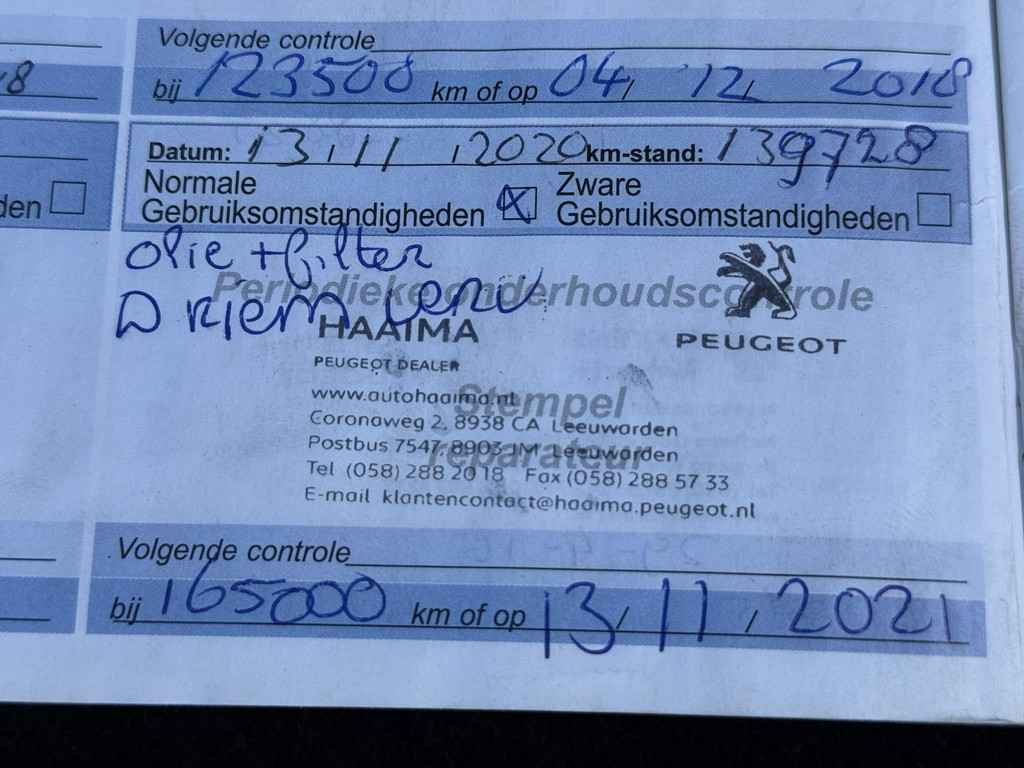 Volgende controle
bij 123500 km of op 04/12/2018
8
Datum: 13/11/2020 km-stand: 139728
Normale Gebruiksomstandigheden
Zware Gebruiksomstandigheden
den
olie + filter
Periodieke onderhoudscontrole
D riem
HAAIMA
PEUGEOT
PEUGEOT DEALER
www.autohaaima.nl
Stempel
Coronaweg 2, 8938 CA Leeuwarden
Postbus 7547, 8903 JM Leeuwarden
reparateur
Tel (058) 288 20 18 Fax (058) 288 57 33
E-mail klantencontact@haaima.peugeot.nl
Volgende controle
bij 165000 km of op 13/11/2021